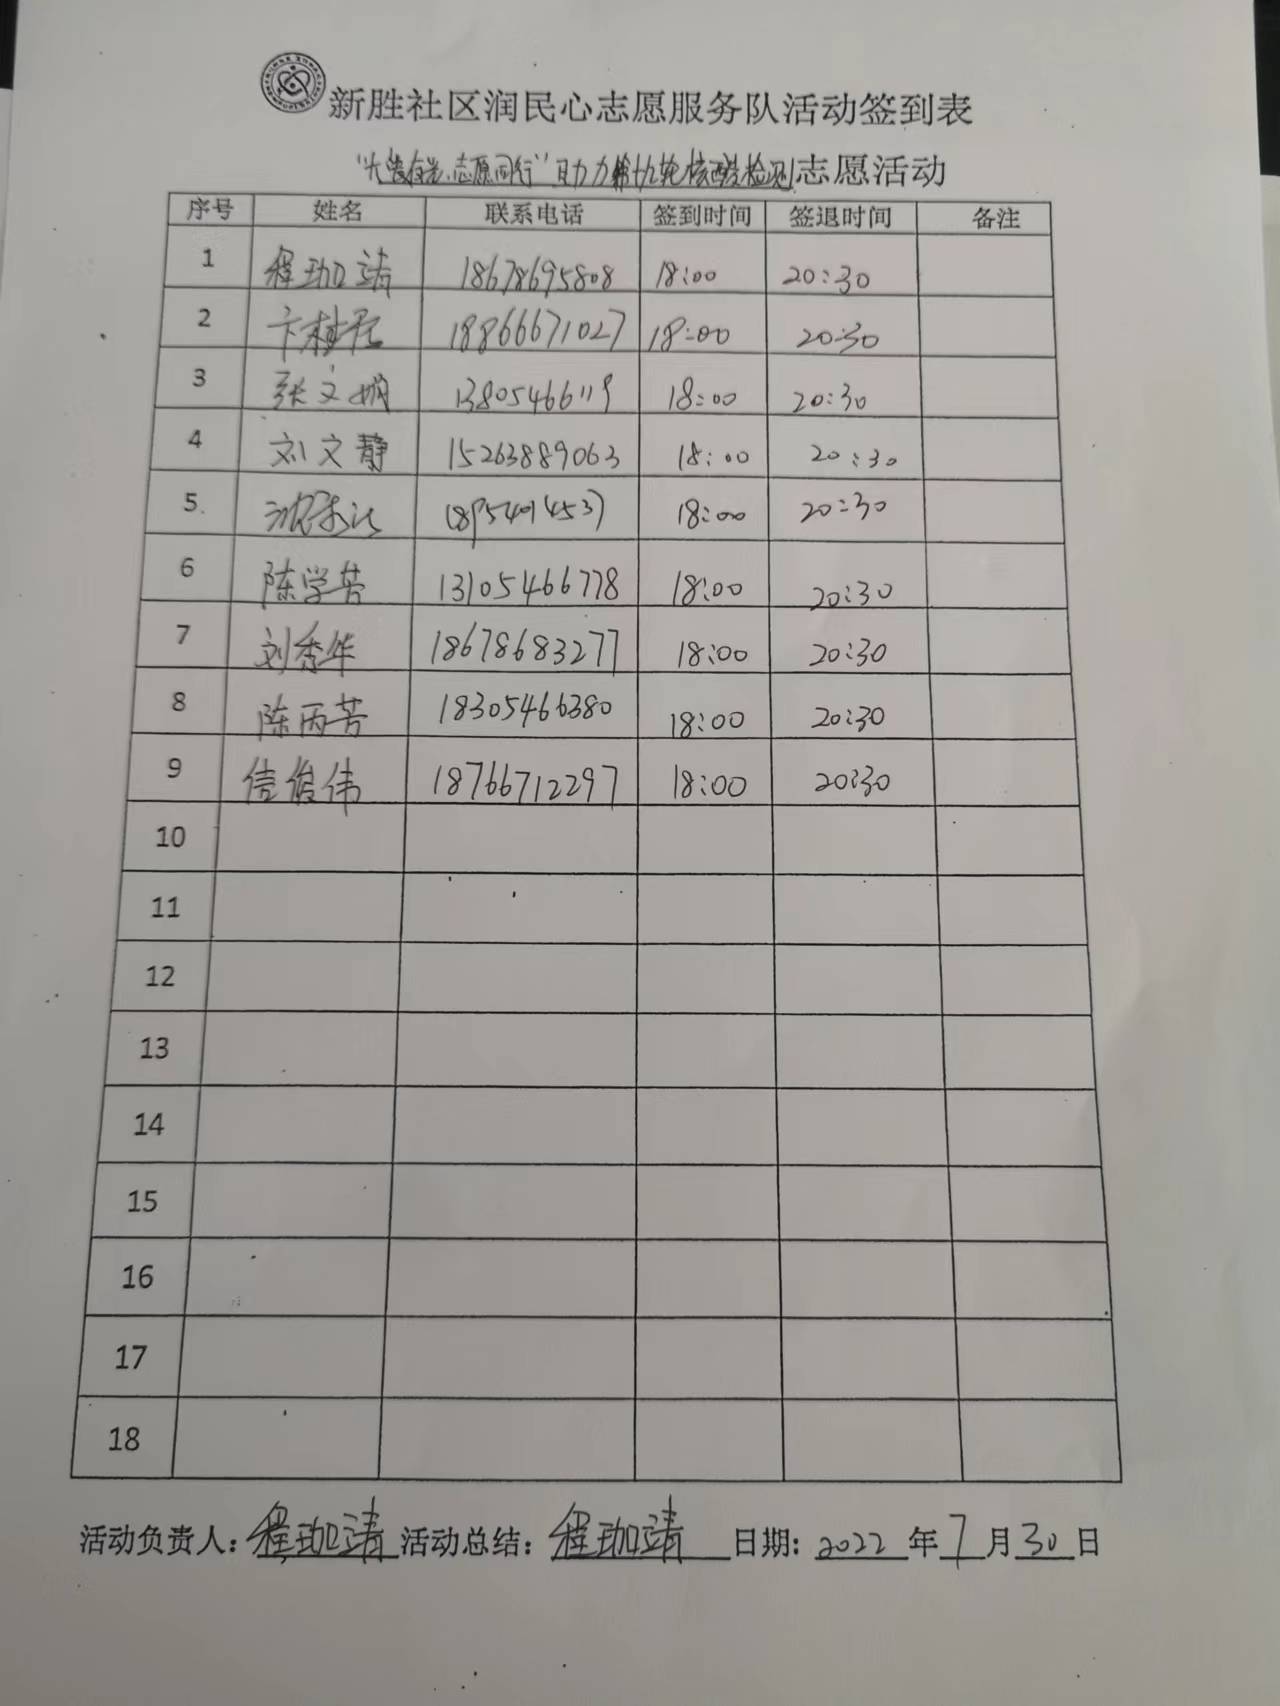 新胜社区润民心志愿服务队活动签到表
志愿同行"助力第十九轮核酸检测志愿活动
序号 姓名 联系电话 签到时间 签退时间 备注
1 程珈靖 18678695808 18:00 20:30
2 卞桂 18866671027 18:00 20:30
3 张文娟 13805466119 18:00 20:30
4 刘文静 15263889063 18:00 20:30
5 18:00 20:30
6 陈学芳 13105466778 18:00 20:30
7 刘秀华 18678683277 18:00 20:30
8 陈丙芳 18305466380 18:00 20:30
9 信俊伟 18766712297 18:00 20:30
10
11
12
13
14
15
16
17
18
活动负责人:程珈靖 活动总结:程珈靖 日期:2022年7月30日